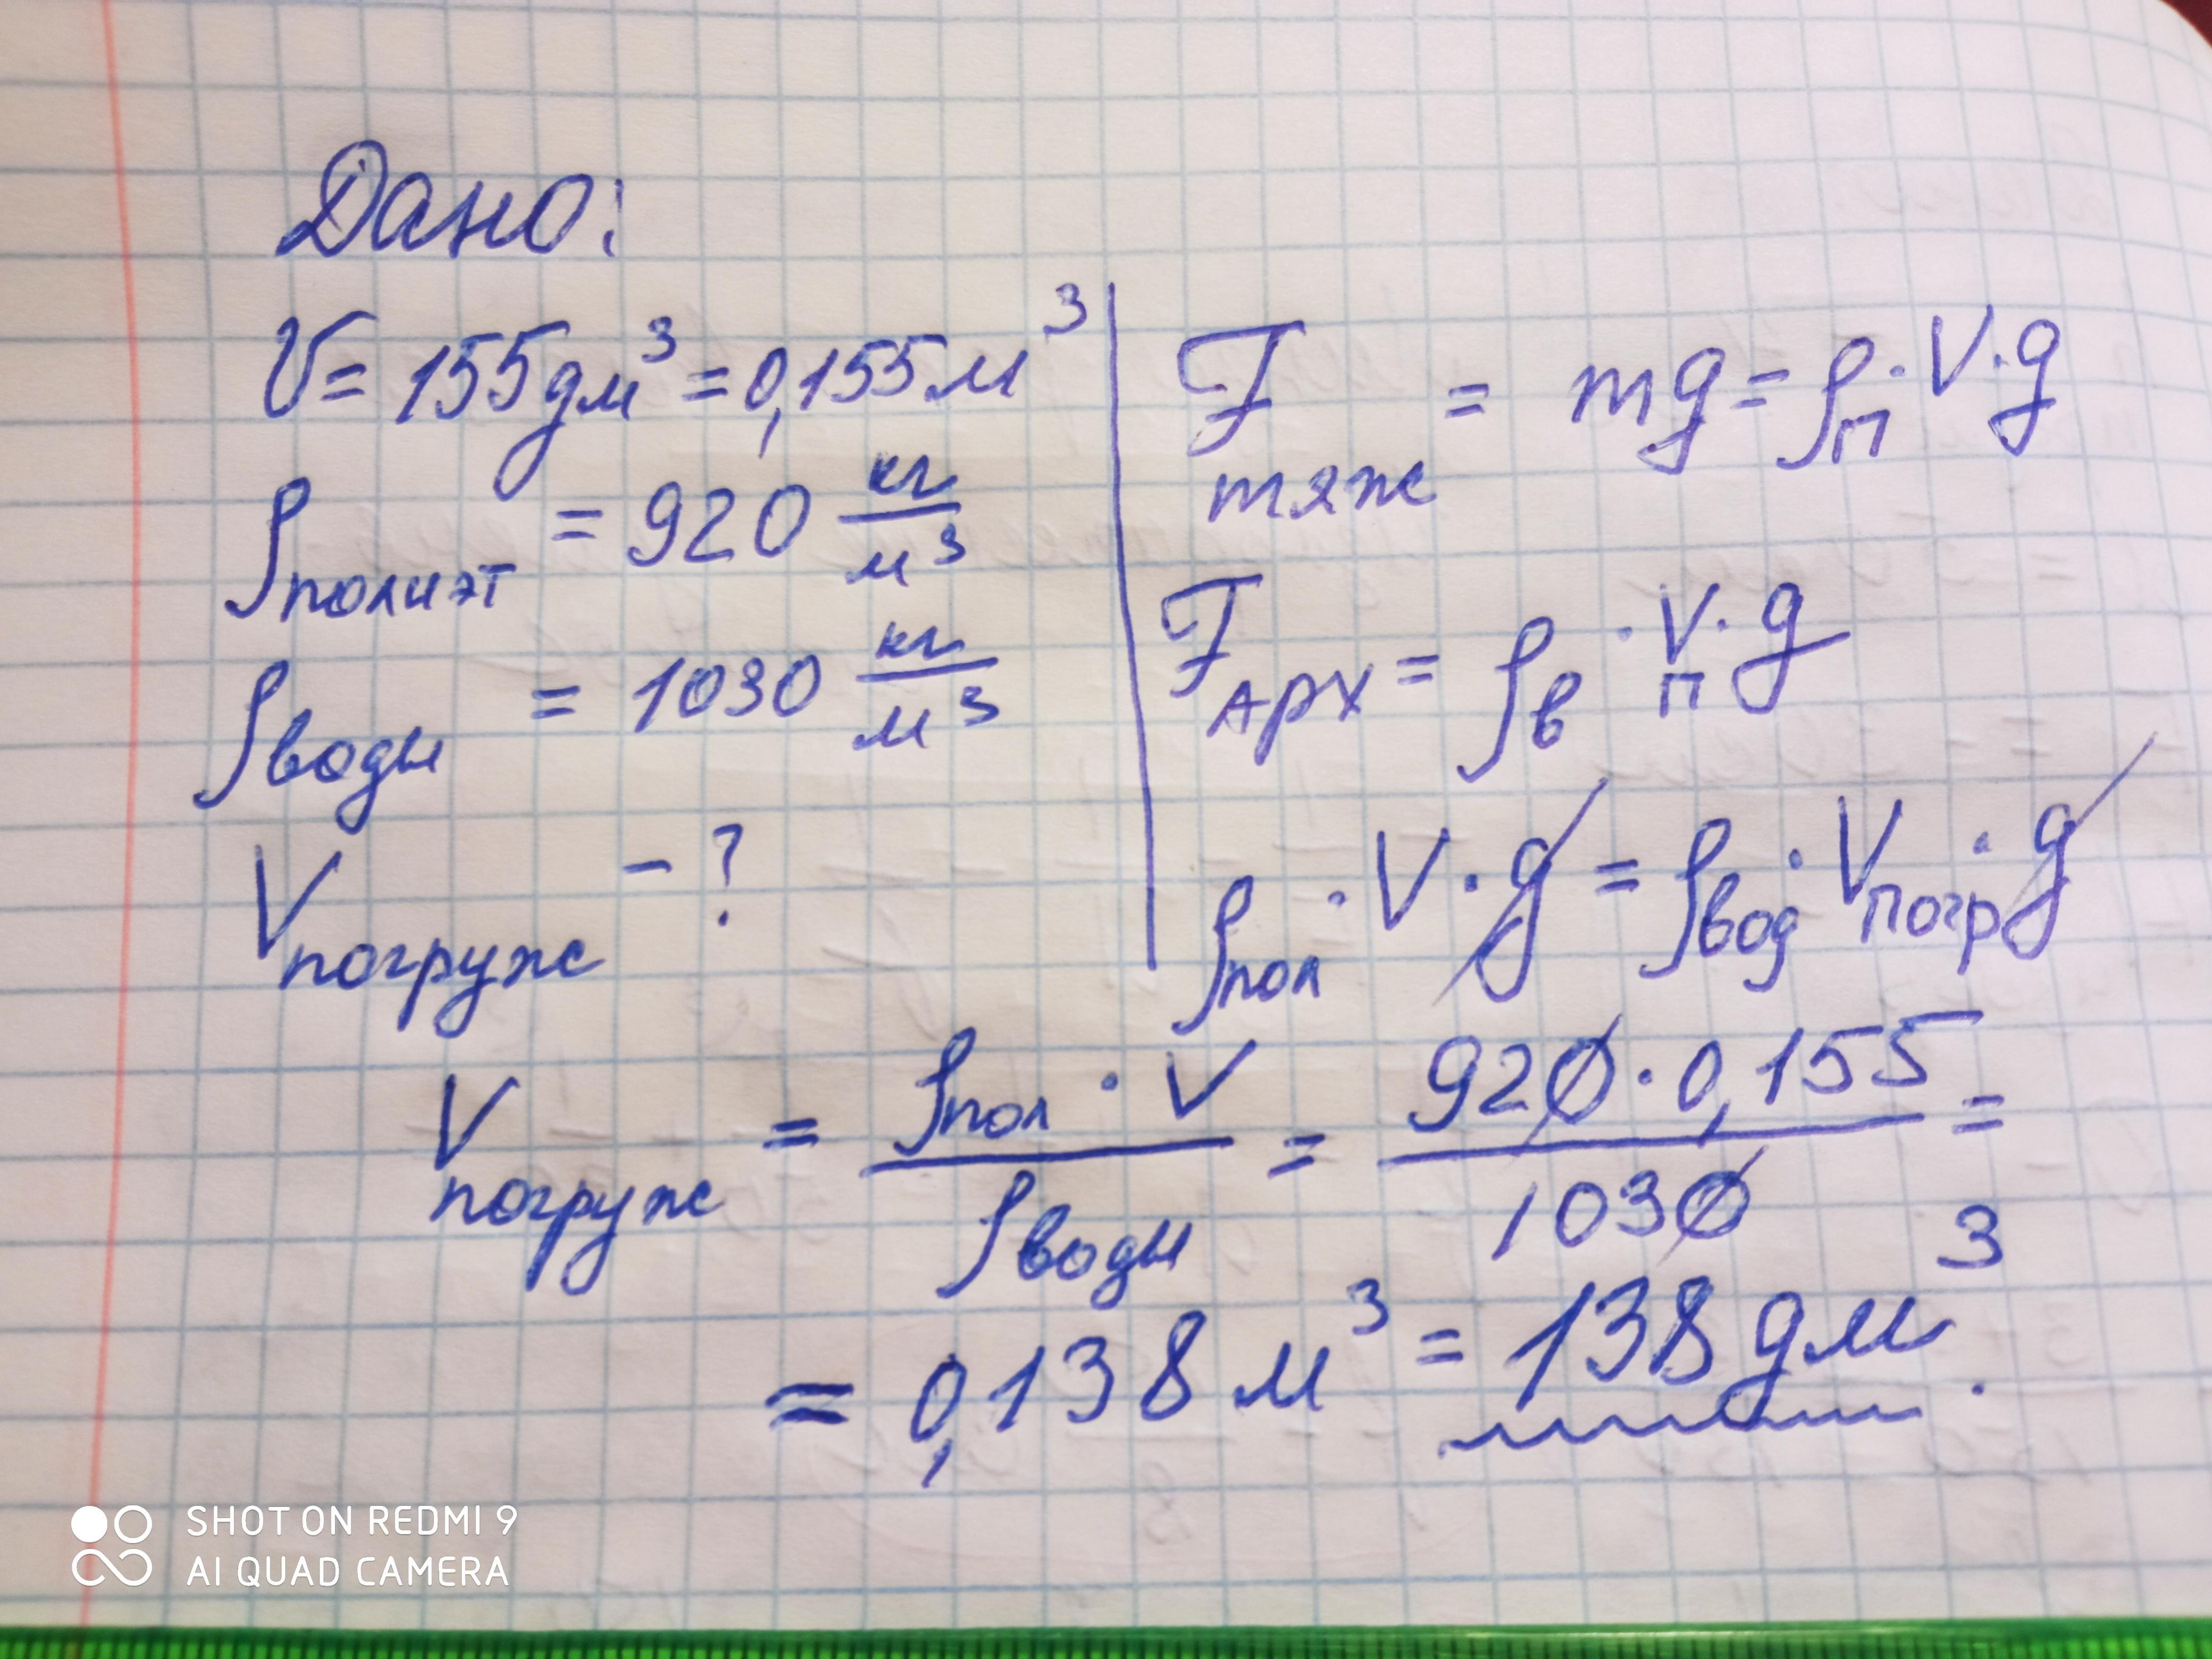 Дано:
V = 155 дм³ = 0,155 м³
ρполиэт = 920 кг/м³
ρводы = 1030 кг/м³
Vпогруж - ?
Fтяж = mg = ρп · V · g
FАРХ = ρв · Vп · g
ρпол · V · g = ρвод · Vпогр · g
Vпогруж = ρпол · V / ρводы = 920 · 0,155 / 1030 =
= 0,138 м³ = 138 дм³.
SHOT ON REDMI 9
AI QUAD CAMERA